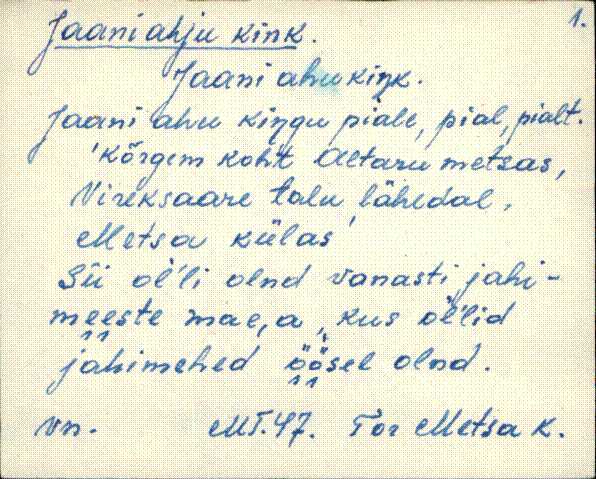 1.
Jaani ahju kink.
Jaani ahu kiŋk.
Jaani ahu kiŋgu piale, pial, pialt.
'kõrgem koht Aetaru metsas,
Vireksaare talu lähedal,
Metsa külas'
Sii ol'li olnd vanasti jahi-
meeste maea, kus ol'lid
jahimehed öösel olnd.
vn. MT.47. Tor Metsa k.